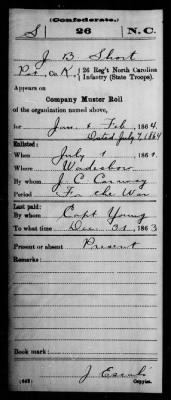 (Confederate.)
S 26 N.C.
J B Short
Pvt, Co. K, 26 Reg't North Carolina
Infantry (State Troops).
Appears on
Company Muster Roll
of the organization named above,
for Jan & Feb, 1864.
Dated July 7, 1864
Enlisted:
When July 1, 1861.
Where Wadesboro
By whom J. C. Caraway
Period For the War
Last paid:
By whom Capt Young
To what time Dec 31, 1863
Present or absent Present
Remarks:
Book mark:
(642) J
Copyist.